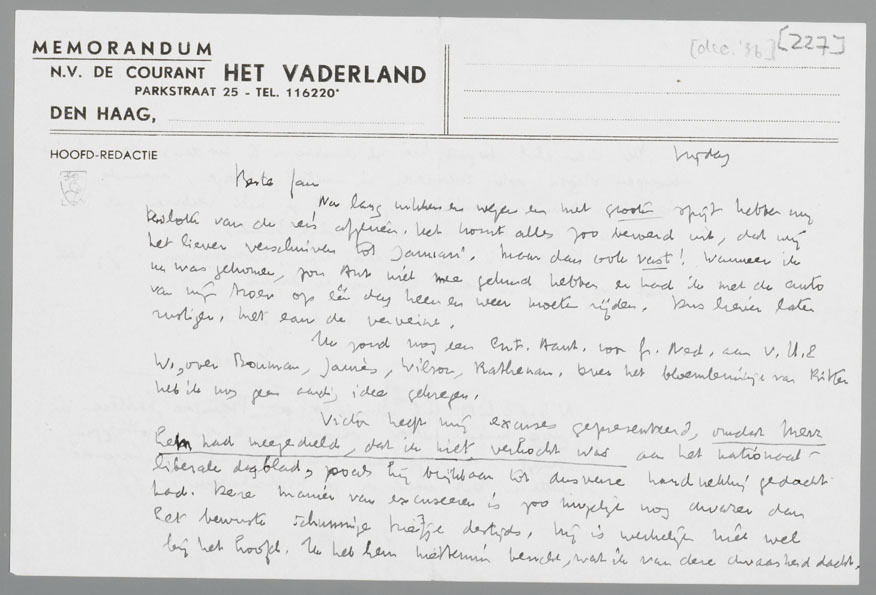 [dec. '36] [227]
MEMORANDUM
N.V. DE COURANT HET VADERLAND
PARKSTRAAT 25 - TEL. 116220*
DEN HAAG,
HOOFD-REDACTIE
Vrijdag
Beste Jan
Na lang wikken en wegen en met grooten spijt hebben wij
besloten van de reis afgezien. Het komt alles zoo benard uit, dat wij
het liever verschuiven tot Januari. Maar dan ook vast! Wanneer ik
nu was gekomen, zou Ant niet mee gekund hebben en had ik met de auto
van mijn broer op één dag heen en weer moeten rijden. Dus liever later
rustiger, met eau de verveine.
Ik zond nog een Ent. Aant. voor Gr. Ned. aan v. H. E
W., over Bouman, James, Wilson, Rathenau. Over het bloemlezinkje van Ritter
heb ik nog geen aardig idee gekregen.
Victor heeft mij excuses gepresenteerd, omdat Marx
hem had meegedeeld, dat ik niet verkocht was aan het nationaal-
liberale dagblad, zooals hij blijkbaar tot dusverre hardnekkig gedacht
had. Deze manier van excuseeren is zoo mogelijk nog dwazer dan
het bewuste schunnige briefje destijds. Hij is werkelijk niet wel
bij het hoofd. Ik heb hem niettemin bericht, wat ik van deze dwaasheid dacht.